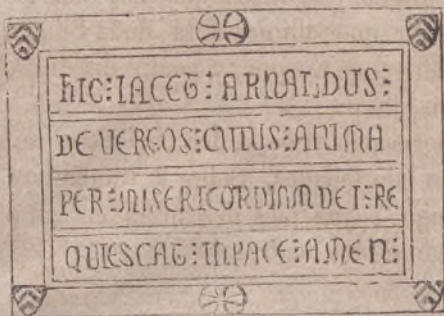 HIC⁝IACET⁝ARNALDUS⁝
DE VERGOS⁝CUIUS⁝ANIMA
PER⁝MISERICORDIAM DEI⁝RE
QUIESCAT⁝IN PACE⁝AMEN⁝